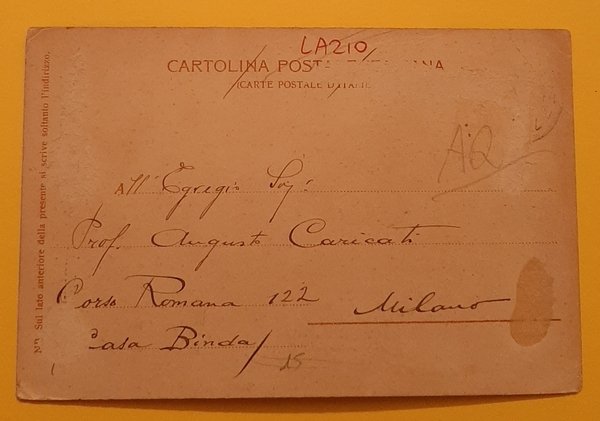 LAZIO
CARTOLINA POSTALE ITALIANA
(CARTE POSTALE D'ITALIE)
AQ
All' Egregio Sig:
Prof. Augusto Caricati
Corso Romana 122
Milano
Casa Binda
25
Nᴮ Sul lato anteriore della presente si scrive soltanto l'indirizzo.